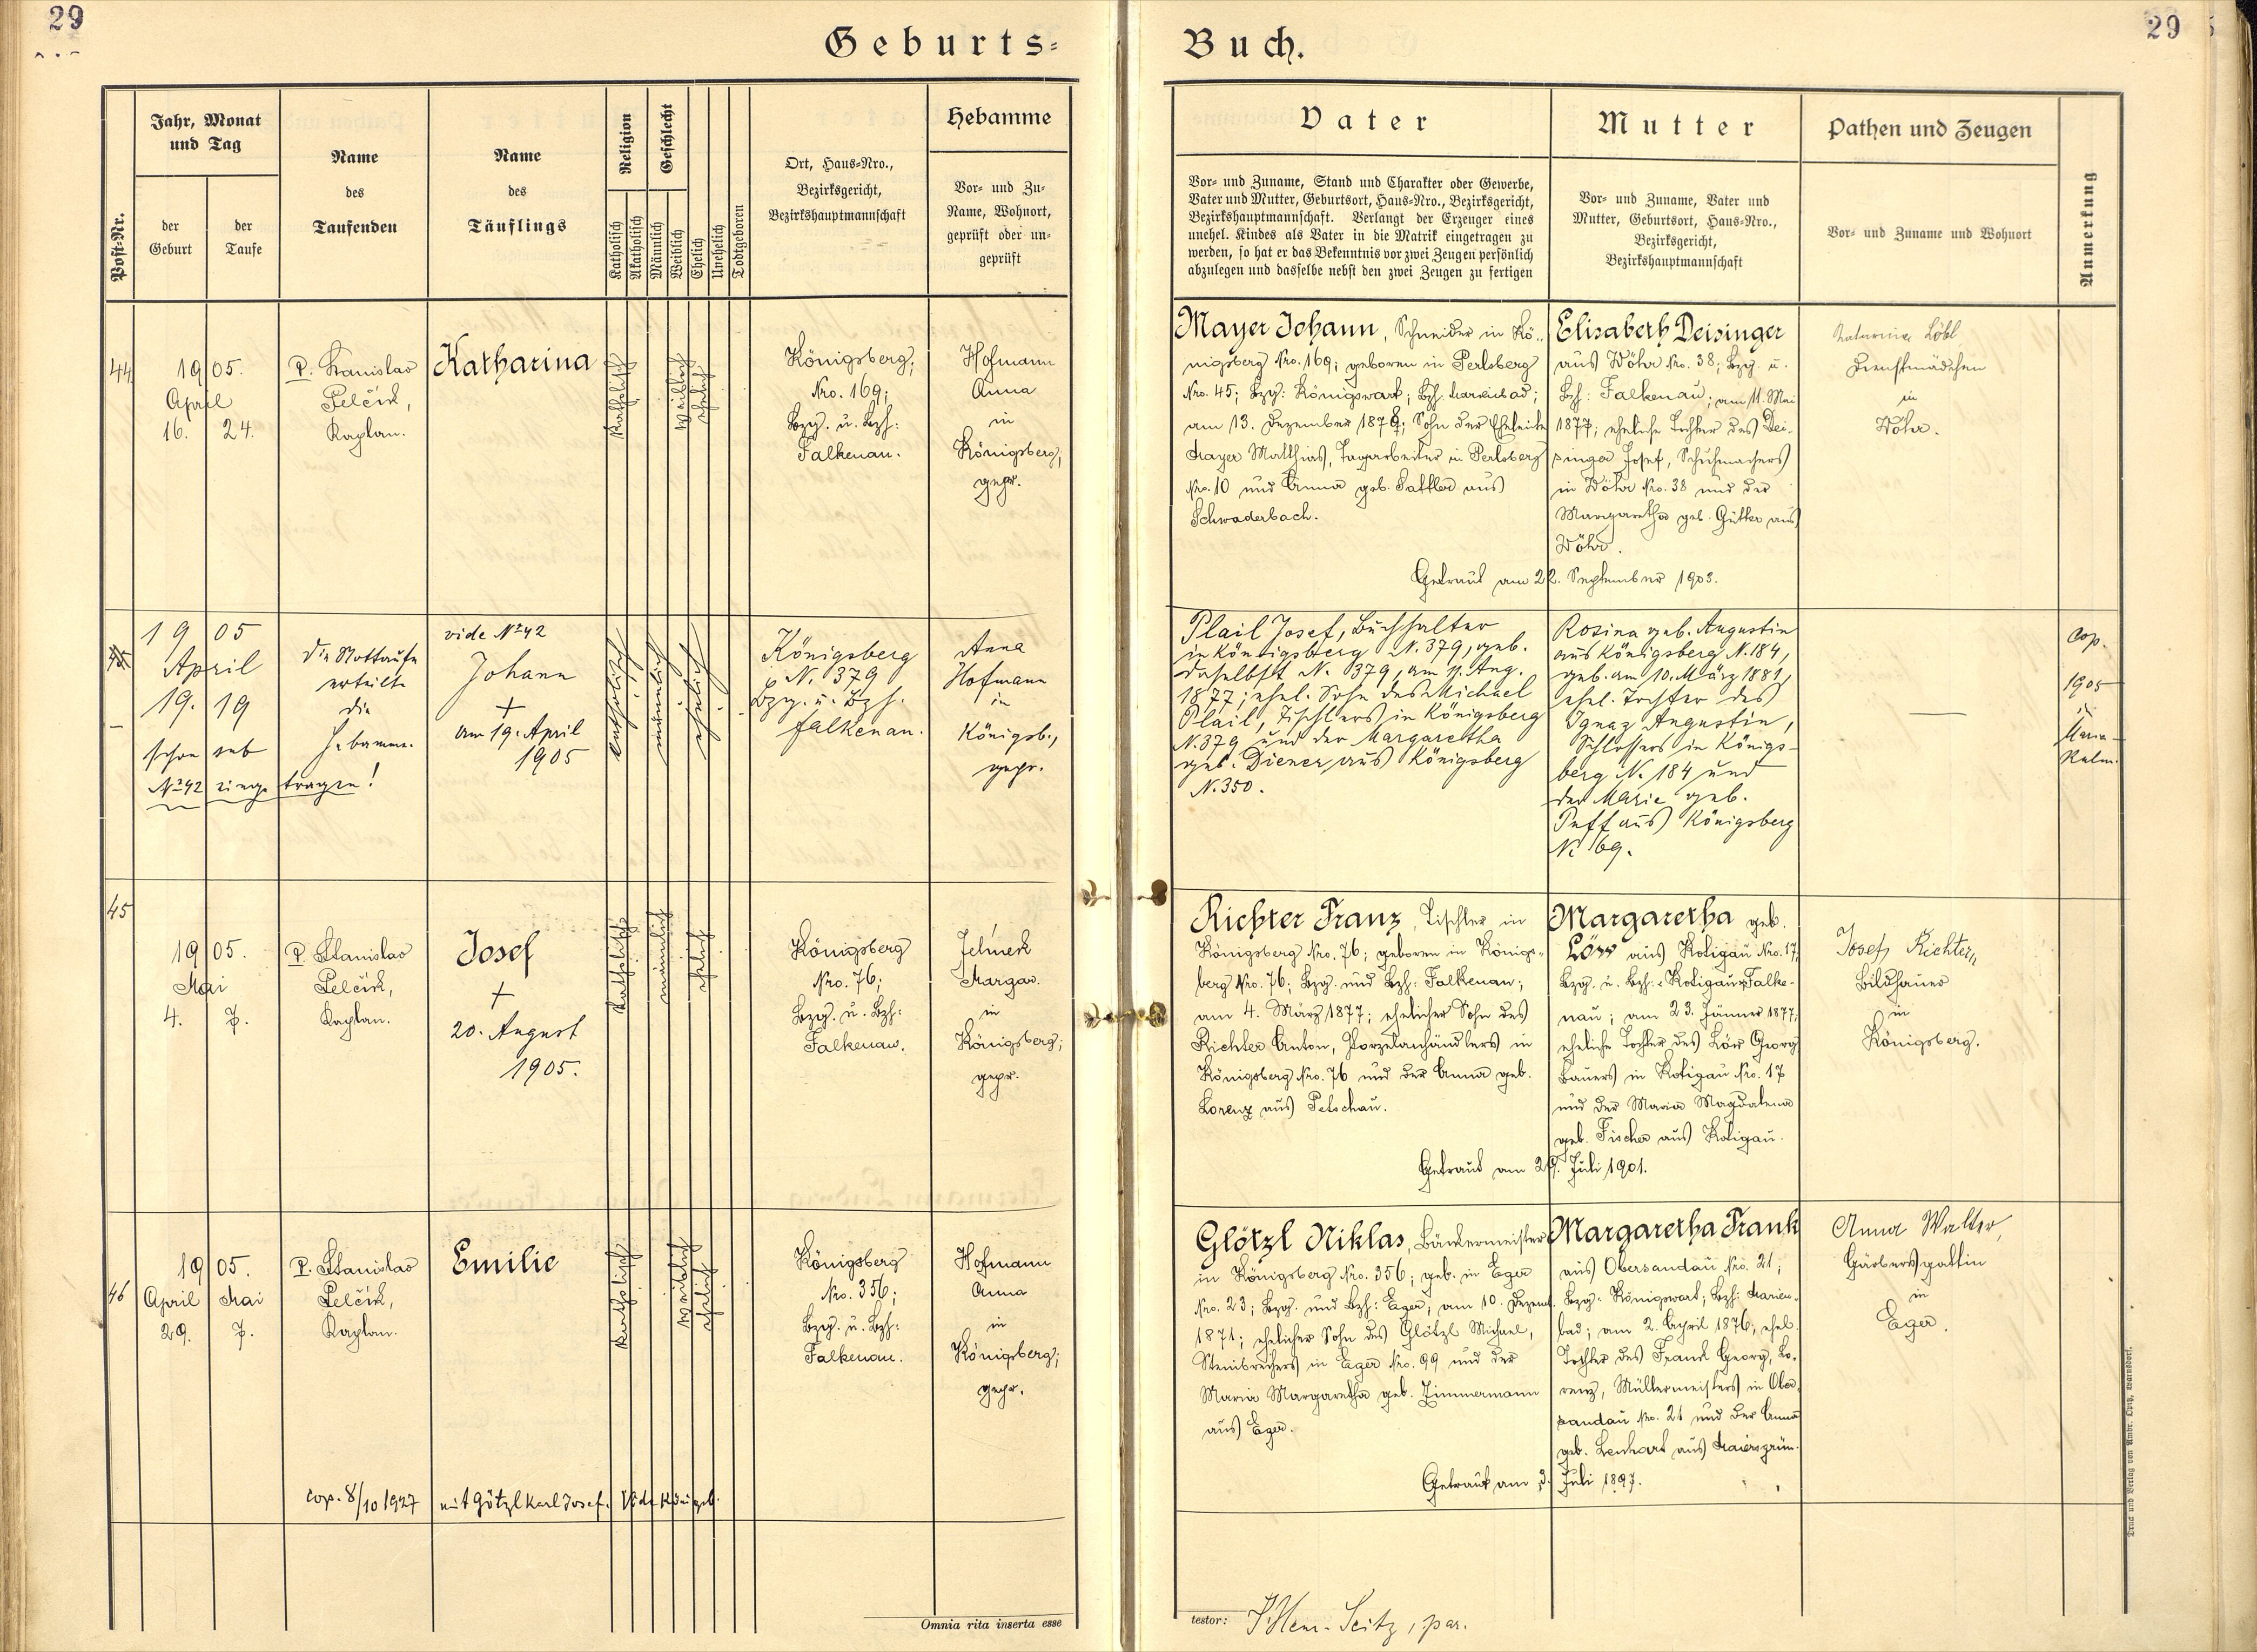 29
Geburts=
Post-Nr.
Jahr, Monat
und Tag
der
Geburt
der
Taufe
Name
des
Taufenden
Name
des
Täuflings
Religion
Katholisch
Akatholisch
Geschlecht
Männlich
Weiblich
Ehelich
Unehelich
Todtgeboren
Ort, Haus=Nro.,
Bezirksgericht,
Bezirkshauptmannschaft
Hebamme
Vor= und Zu=
Name, Wohnort,
geprüft oder un=
geprüft
44
1905.
April
16. 24.
P. Stanislav
Pelčík,
Kaplan.
Katharina
katholisch
weiblich
ehelich
Königsberg;
Nro. 169;
Bzg. u. Bzh:
Falkenau.
Hofmann
Anna
in
Königsberg;
gepr.
45
1905
April
19. 19
schon sub
№ 42 einge tragen!
Die Nottaufe
erteilte
die
Hebamme.
vide № 42
Johann
+
am 19. April
1905
katholisch
männlich
ehelich
Königsberg
N. 379
Bzg. u. Bzh.
Falkenau.
Anna
Hofmann
in
Königsb.,
gepr.
45
1905.
Mai
4. 7.
P. Stanislav
Pelčík,
Kaplan.
Josef
+
20. August
1905.
katholisch
männlich
ehelich
Königsberg
Nro. 76;
Bzg. u. Bzh:
Falkenau.
Jelinek
Margar.
in
Königsberg;
gepr.
46
1905.
April Mai
29. 7.
P. Stanislav
Pelčík,
Kaplan.
Emilie
katholisch
weiblich
ehelich
Königsberg
Nro. 356;
Bzg. u. Bzh:
Falkenau.
Hofmann
Anna
in
Königsberg;
gepr.
cop. 8/10 1927 mit Götzl Karl Josef.
Omnia rita inserta esse
Buch.
29
Vater
Vor= und Zuname, Stand und Charakter oder Gewerbe,
Vater und Mutter, Geburtsort, Haus=Nro., Bezirksgericht,
Bezirkshauptmannschaft. Verlangt der Erzeuger eines
unehel. Kindes als Vater in die Matrik eingetragen zu
werden, so hat er das Bekenntnis vor zwei Zeugen persönlich
abzulegen und dasselbe nebst den zwei Zeugen zu fertigen
Mutter
Vor= und Zuname, Vater und
Mutter, Geburtsort, Haus=Nro.,
Bezirksgericht,
Bezirkshauptmannschaft
Pathen und Zeugen
Vor= und Zuname und Wohnort
Anmerkung
Mayer Johann, Schneider in Kö=
nigsberg Nro. 169; geboren in Perlsberg
Nro. 45; Bzg: Königswart; Bzh: Marienbad;
am 13. Dezember 1878; Sohn der Eheleute
Mayer Matthias, Tagarbeiter in Perlsberg
Nro. 10 und Anna geb. Sattler aus
Schwaderbach.
Elisabeth Deisinger
aus Wöhr Nro. 38; Bzg. u.
Bzh: Falkenau; am 11. Mai
1877; eheliche Tochter des Dei-
singer Josef, Schuhmachers
in Wöhr Nro. 38 und der
Margaretha geb. Gütter aus
Wöhr.
Getraut am 22. September 1903.
Löbl
Dienstmädchen
in
Wöhr.
Plail Josef, Buchhalter
in Königsberg N. 379, geb.
daselbst N. 379, am 11. Aug.
1877; ehel. Sohn des Michael
Plail, Tischlers in Königsberg
N. 379 und der Margaretha
geb. Diener aus Königsberg
N. 350.
Rosina geb. Augustin
aus Königsberg N. 184,
geb. am 10. März 1881,
ehel. Tochter des
Ignaz Augustin,
Schlossers in Königs-
berg N. 184 und
der Marie geb.
Puff aus Königsberg
N. 169.
cop.
1905
in
Maria-
Kulm.
Richter Franz, Tischler in
Königsberg Nro. 76; geboren in Königs=
berg Nro. 76; Bzg. und Bzh: Falkenau;
am 4. März 1877; ehelicher Sohn des
Richter Anton, Porzelanhändlers in
Königsberg Nro. 76 und der Anna geb.
Lorenz aus Petschau.
Margaretha geb.
Löw aus Kotigau Nro. 17,
Bzg. u. Bzh: Kotigau Falke-
nau; am 23. Jänner 1877;
eheliche Tochter des Löw Georg
Bauers in Kotigau Nro. 17
und der Maria Magdalena
geb. Fischer aus Kotigau.
Getraut am 29. Juli 1901.
Josef Richter,
Bildhauer
in
Königsberg.
Glötzl Niklas, Bäckermeister
in Königsberg Nro. 356; geb. in Eger
Nro. 23; Bzg. und Bzh: Eger; am 10. Dezemb.
1871; ehelicher Sohn des Glötzl Michael,
Steinbrechers in Eger Nro. 99 und der
Maria Margaretha geb. Zimmermann
aus Eger.
Margaretha Frank
aus Obersandau Nro. 21;
Bzg: Königswart; Bzh: Marien-
bad; am 2. April 1876; ehel.
Tochter des Frank Georg, Lo-
renz, Müllermeisters in Ober-
sandau Nro. 21 und der Anna
geb. Lenhart aus Maiersgrün.
Getraut am 3. Juli 1897.
Anna Walter,
Gärbersgattin
in
Eger.
testor: P. Henr. Seitz, par.
Druck und Verlag von Ambr. Opitz, Warnsdorf.